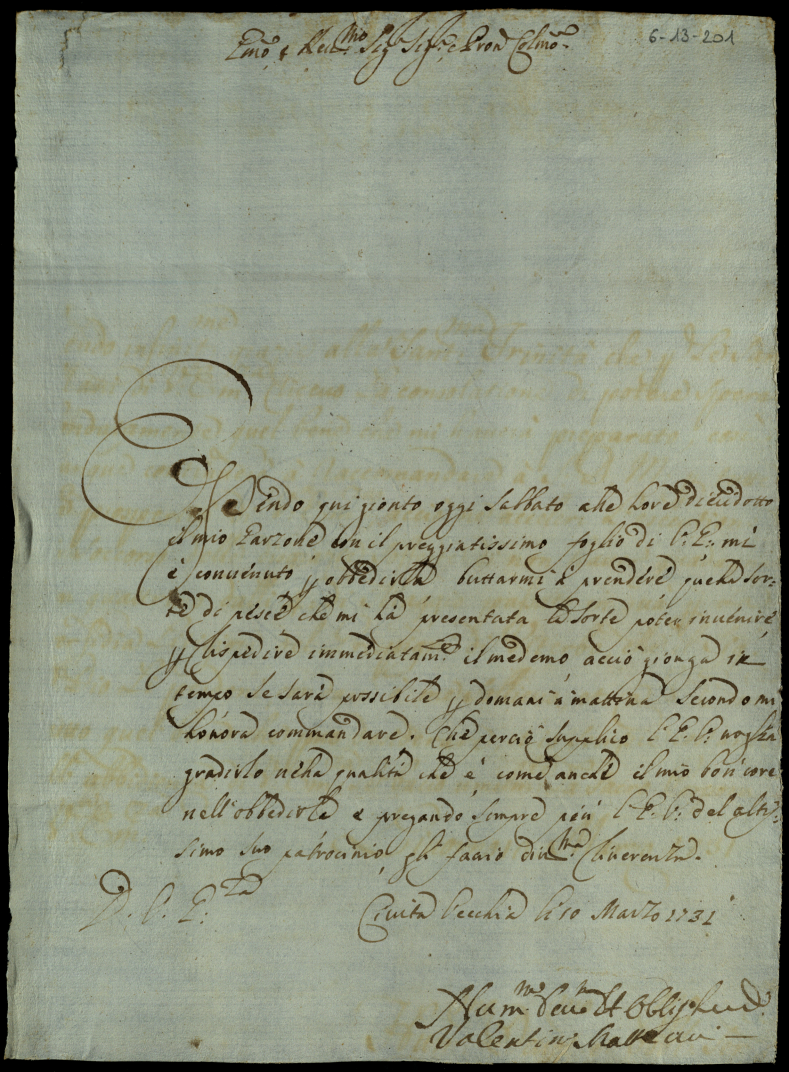 6-13-201
Emo e Reu.mo Sig Sig.e Pron Colmo
Essendo qui gionto oggi Sabbato alle hore diecidotto
il mio Garzone con il preggiatissimo foglio di V. E: mi
è conuenuto p obbedirla buttarmi à prendere quella sor=
te di pesce che mi hà presentata la sorte poter inuenire
p spedire immediatam.e il medemo acciò gionga in
tempo se sarà possibile p domani à mattina secondo mi
honora commandare. Che perciò supplico V. E. V. voglia
gradirlo nella qualità che è come anche il mio bon core
nell'obbedirla e pregando sempre più V. E. V. del altis=
simo suo patrocinio gli faccio diu.ma riuerenza.
D. V. E.za
Ciuita Vecchia li 10 Marzo 1731
Hum.mo Deu.mo et Obblig.
Valentin